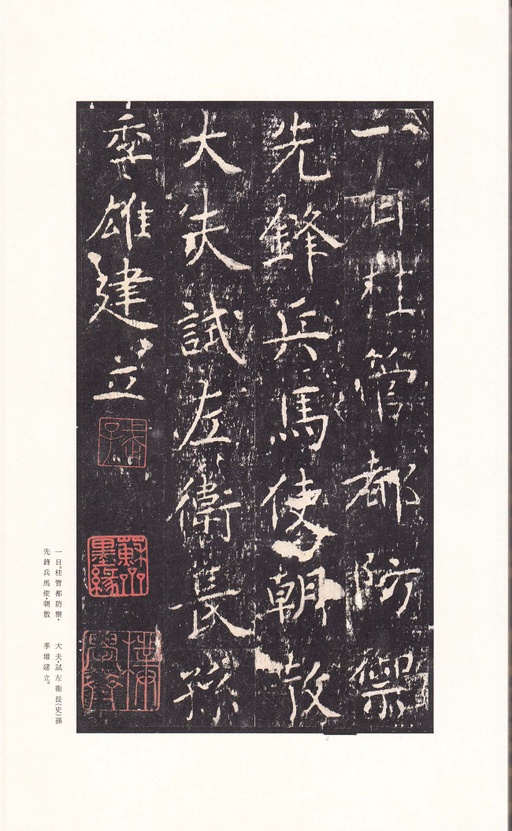 一日桂管都防禦
先鋒兵馬使朝散
大夫試左衛長孫
季雄建立
蘇齋
墨緣
一日。桂管都防禦・
先鋒兵馬使・朝散
大夫・試左衛長(史)孫
季雄建立。